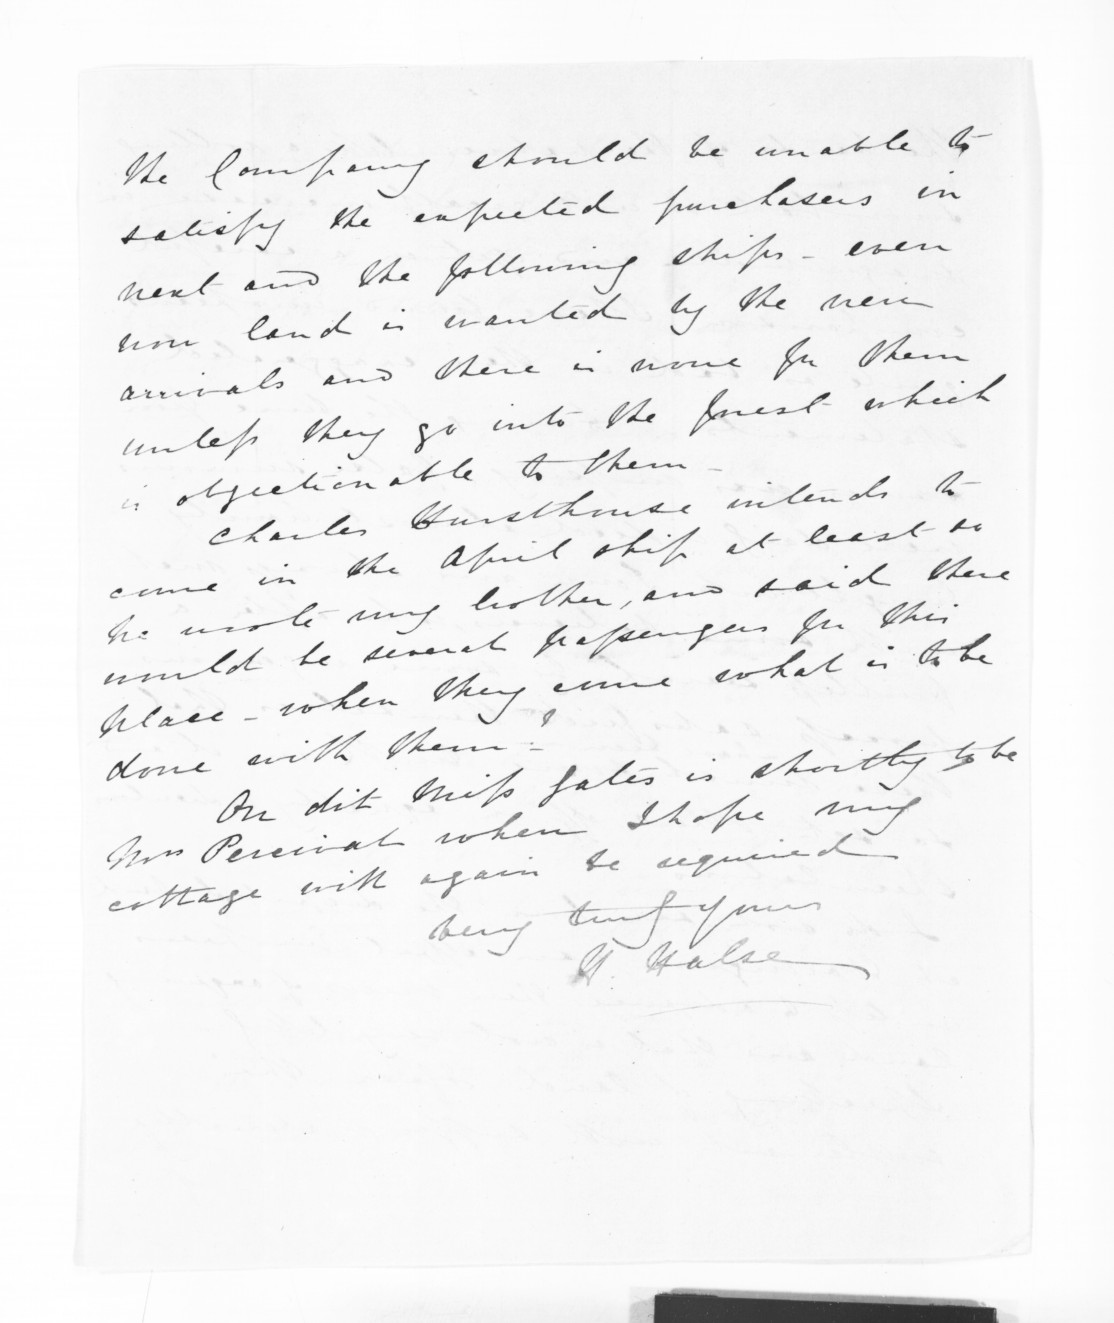 the Company should be unable to
satisfy the expected purchasers in
next and the following ships - even
now land is wanted by the new
arrivals and there is none for them
unless they go into the forest which
is objectionable to them -
Charles Hursthouse intends to
come in the April ship at least so
he wrote my brother, and said there
would be several passengers for this
place - when they come what is to be
done with them - ?
On dit Miss Gates is shortly to be
Mrs Percival when I hope my
cottage will again be required
very truly yours
H. Halse